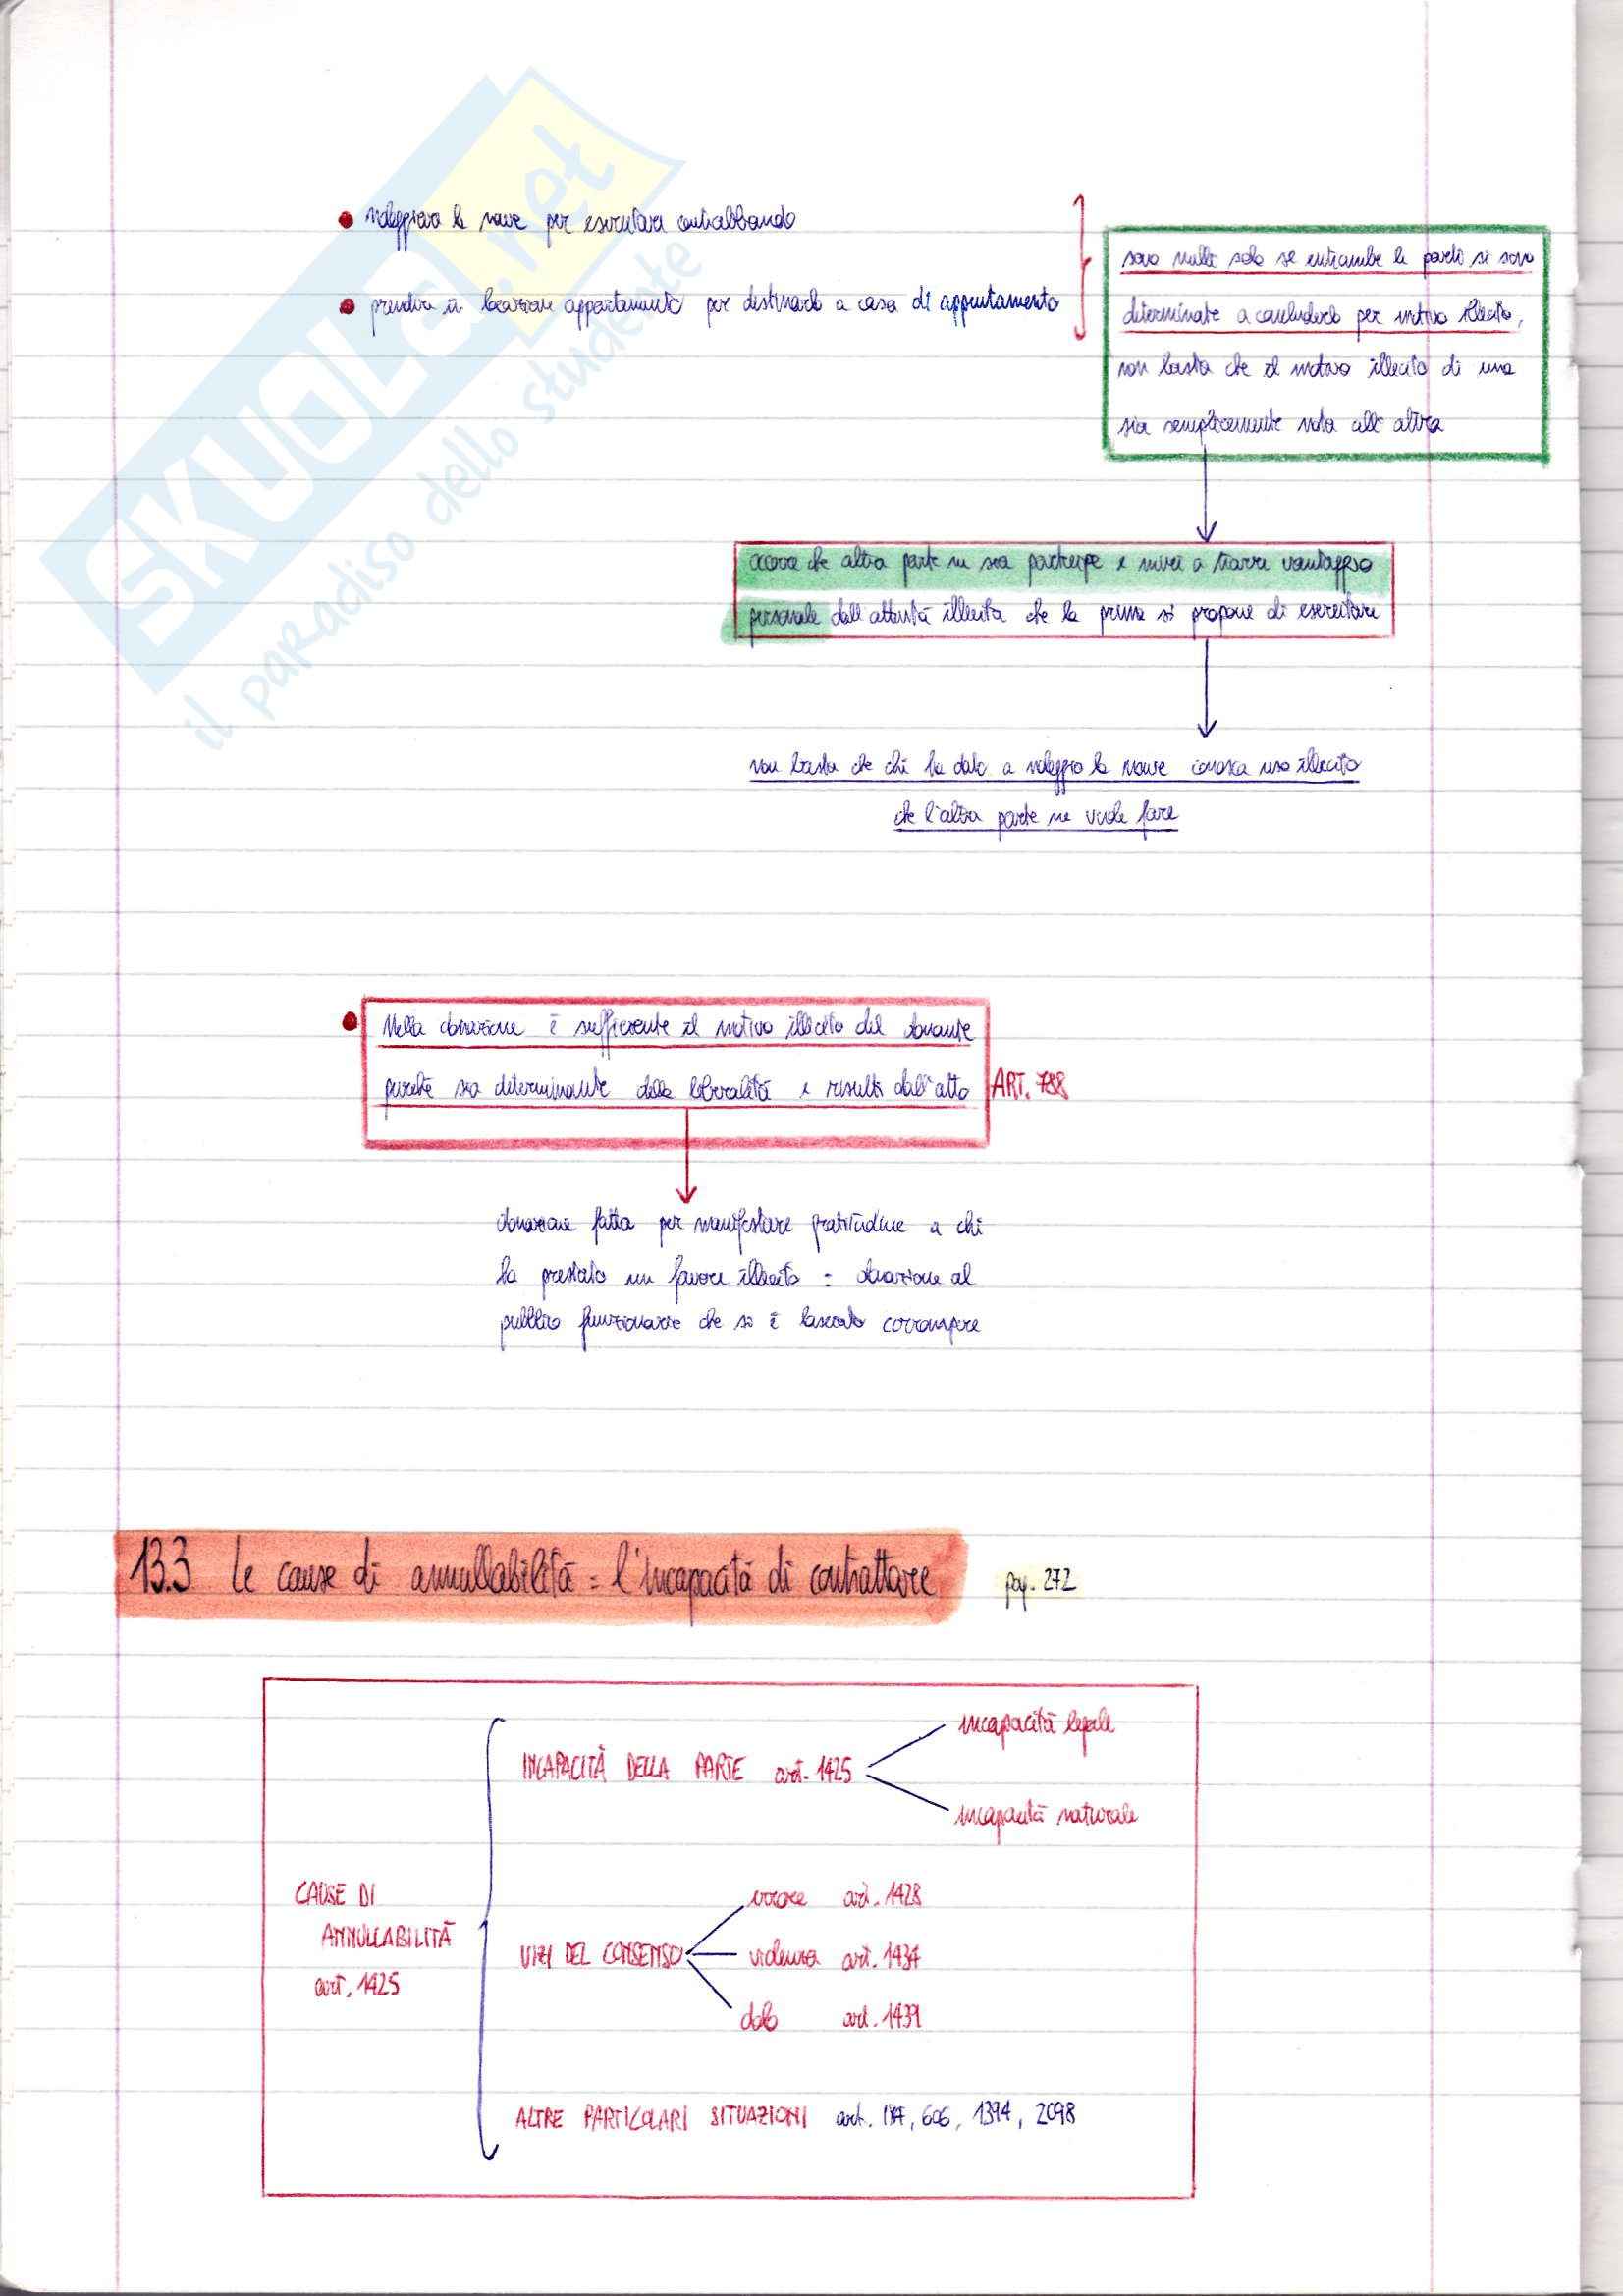 SKUOLA.net
il paradiso dello studente
noleggiare la nave per esercitare contrabbando
prendere in locazione appartamento per destinarlo a casa di appuntamento
sono nulli solo se entrambe le parti si sono
determinate a concluderlo per motivo illecito,
non basta che il motivo illecito di una
sia semplicemente nota all'altra
occorre che altra parte ne sia partecipe e miri a trarre vantaggio
personale dall'attività illecita che la prima si propone di esercitare
non basta che chi ha dato a noleggio la nave conosca uso illecito
che l'altra parte ne vuole fare
Nella donazione è sufficiente il motivo illecito del donante
purché sia determinante della liberalità e risulti dall'atto ART. 788
donazione fatta per manifestare gratitudine a chi
ha prestato un favore illecito = donazione al
pubblico funzionario che si è lasciato corrompere
13.3 Le cause di annullabilità = l'incapacità di contrattare pag. 272
incapacità legale
INCAPACITÀ DELLA PARTE art. 1425
incapacità naturale
CAUSE DI
ANNULLABILITÀ
art. 1425
errore art. 1428
VIZI DEL CONSENSO violenza art. 1434
dolo art. 1439
ALTRE PARTICOLARI SITUAZIONI art. 606, 1394, 2098